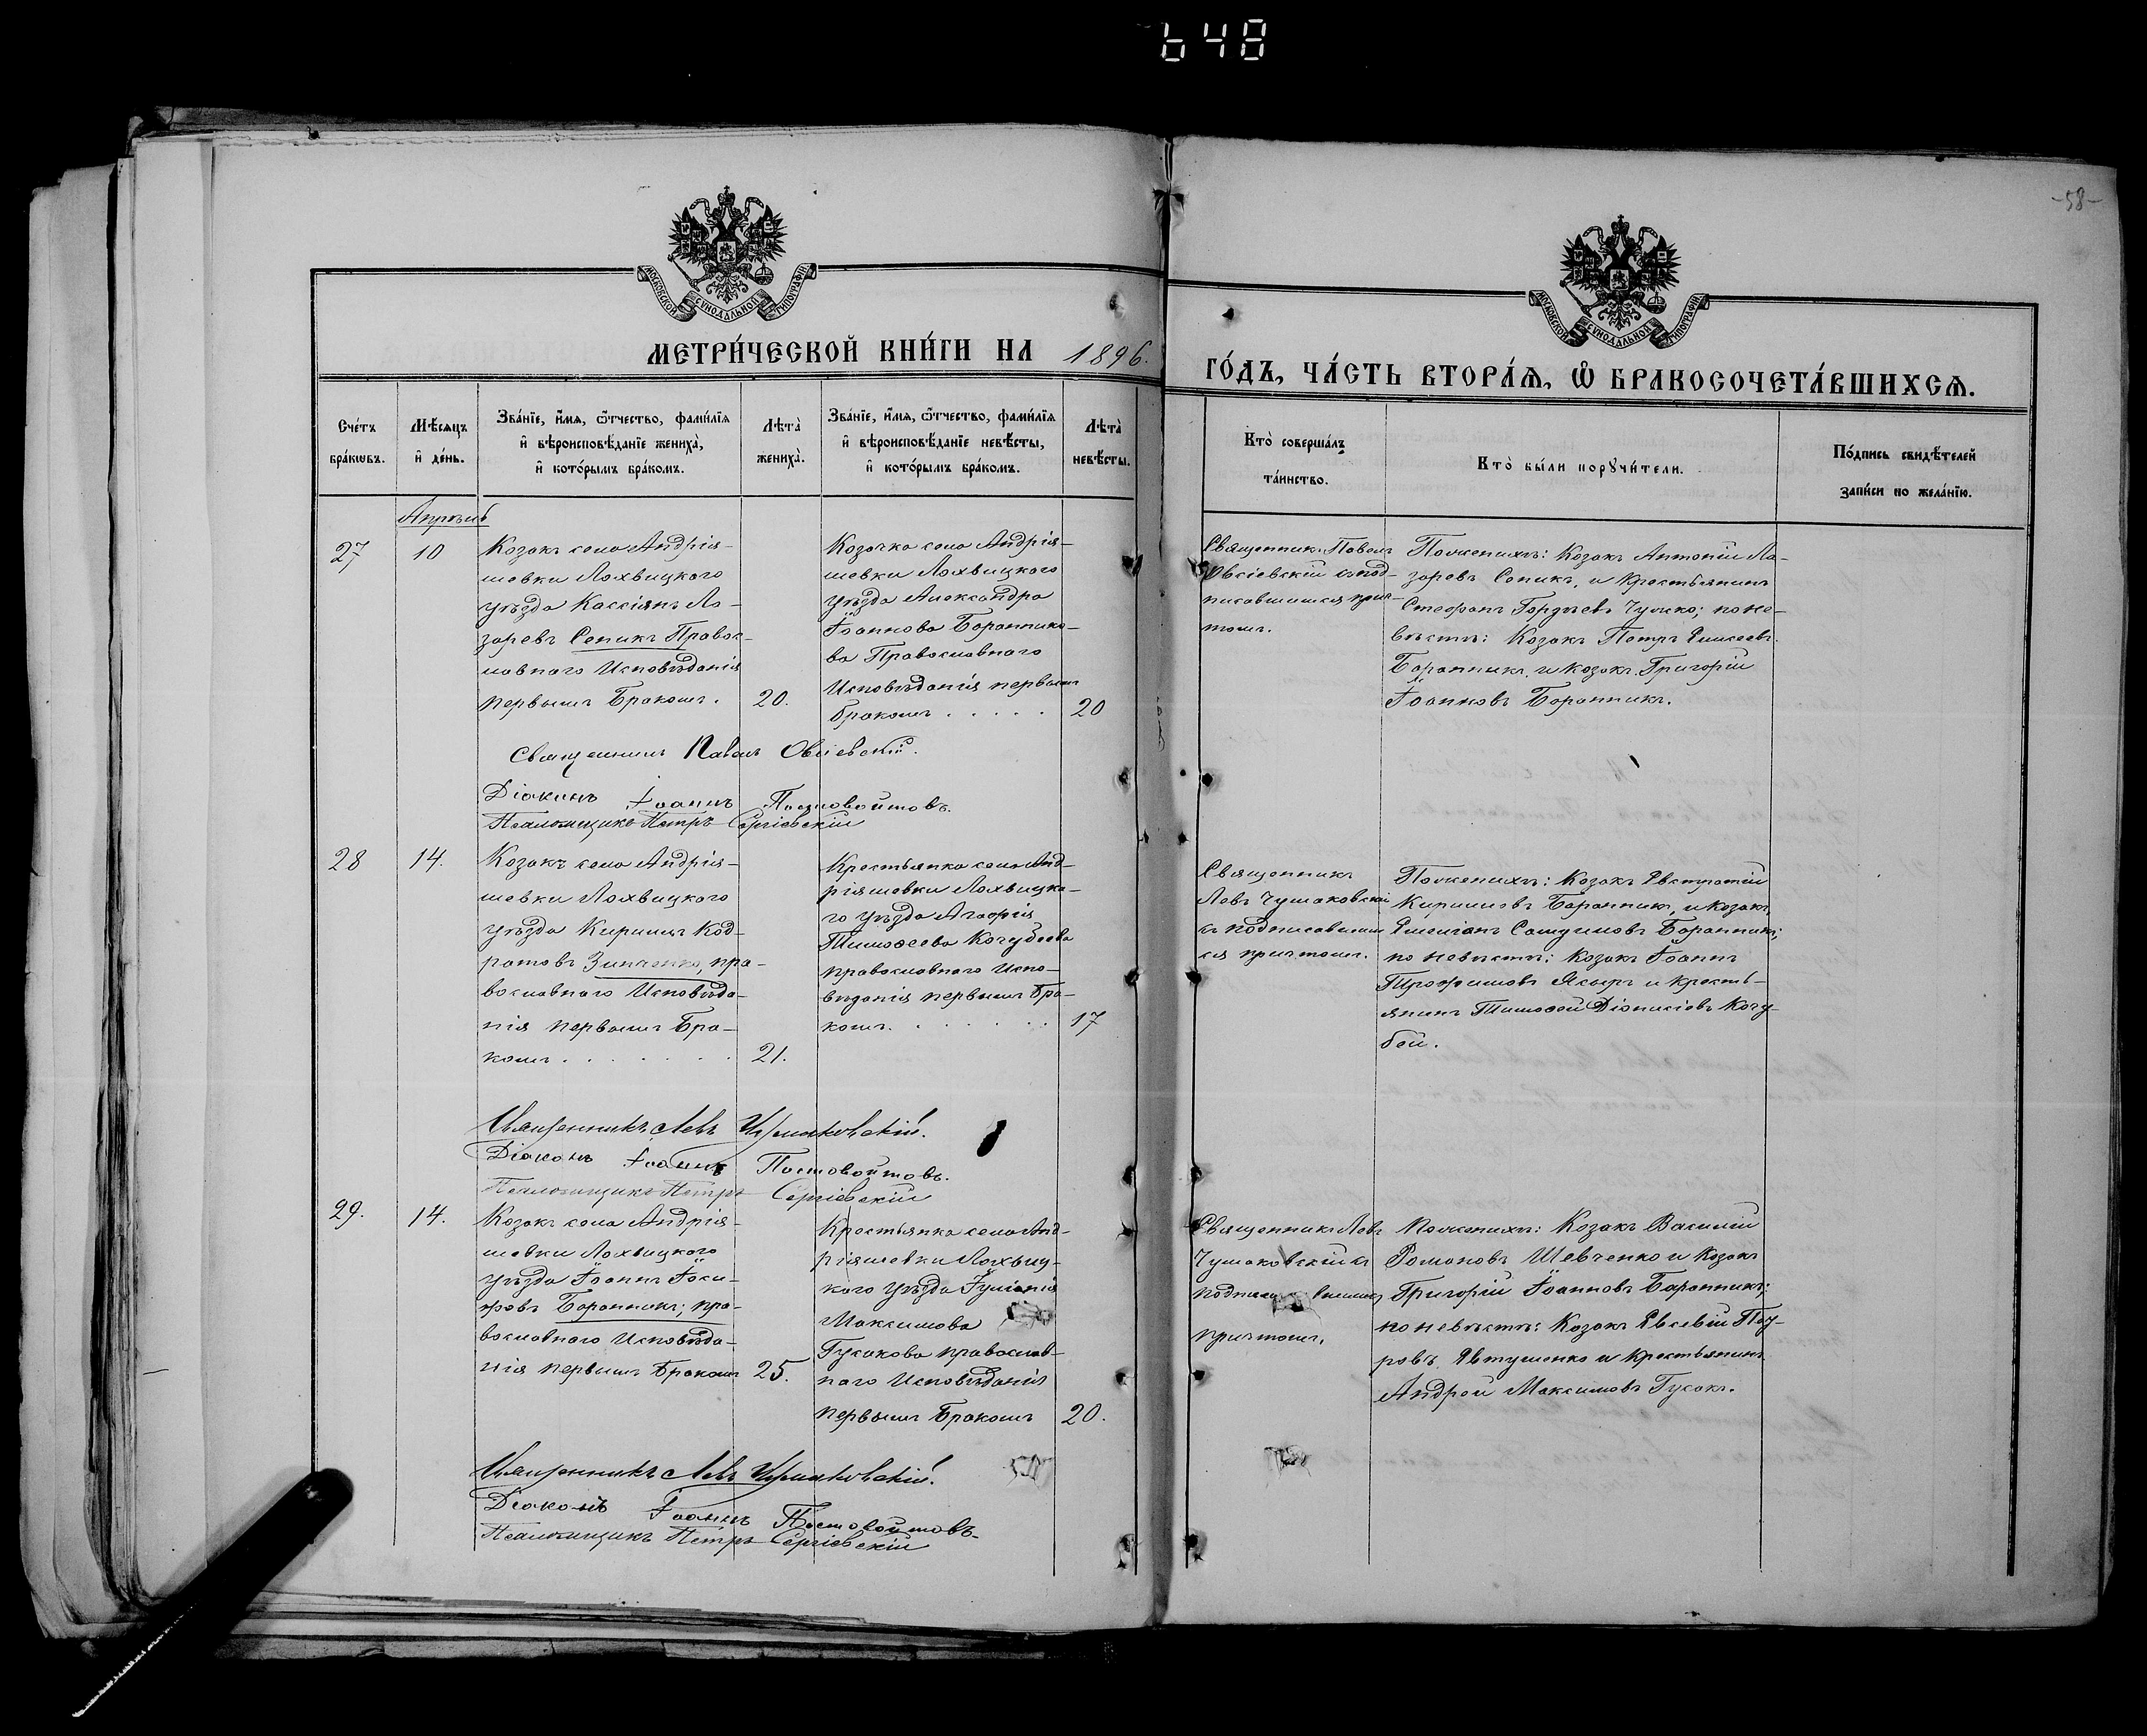 648
-58-
МОСКОВСКОЙ СѴНОДАЛЬНОЙ ТИПОГРАФІИ
МОСКОВСКОЙ СѴНОДАЛЬНОЙ ТИПОГРАФІИ
МЕТРИ́ЧЕСКОЙ КНИ́ГИ НА 1896.
ГО́ДЪ, ЧА́СТЬ ВТОРА́Ѧ, Ѿ БРАКОСОЧЕТА́ВШИХСѦ.
Сче́тъ
бра́кѡвъ.
Мѣ́сѧцъ
и҆ де́нь.
Зва́нїе, и҆́мѧ, ѻ҆́тчество, фами́лїѧ
и҆ вѣроисповѣ́данїе жениха̀,
и҆ кото́рымъ бра́комъ.
Лѣ́та
жениха̀.
Зва́нїе, и҆́мѧ, ѻ҆́тчество, фами́лїѧ
и҆ вѣроисповѣ́данїе невѣ́сты,
и҆ кото́рымъ бра́комъ.
Лѣ́та
невѣ́сты.
Кто̀ соверша́лъ
та́инство.
Кто̀ бы́ли порꙋчи́тели.
По́дпись свидѣ́телей
за́писи по жела́нїю.
Апрѣль
27
10
Козакъ села Андрія-
шевки Лохвицкого
уѣзда Кассіянъ Ла-
заревъ Сепикъ Правос-
лавнаго Исповѣданія
первымъ Бракомъ.
20.
Козачка села Андрія-
шевки Лохвицкаго
уѣзда Александра
Іоаннова Баранника-
ва Православнаго
Исповѣданія первымъ
бракомъ . . . . .
20
Священник Павелъ
Овсіевскій съ под-
писавшимся прич-
томъ.
По женихѣ: Козакъ Антоній Ла-
заревъ Сепикъ, и Крестьянинъ
Стефанъ Гордѣевъ Чумко; по не-
вѣстѣ: Козакъ Петръ Елисеевъ
Баранникъ, и козакъ Григорій
Іоанновъ Баранникъ.
Священникъ Павелъ Овсіевскій.
Діаконъ Іоаннъ Постовойтовъ.
Псаломщикъ Петръ Сергіевскій
28
14.
Козакъ села Андрія-
шевки Лохвицкого
уѣзда Кириллъ Код-
ратовъ Зинченко, пра-
вославнаго Исповѣда-
нія первымъ Бра-
комъ . . . . . .
21.
Крестьянка села Анд-
ріяшевки Лохвицка-
го уѣзда Агафія
Тимофеева Кочубеева
православнаго Испо-
вѣданія первымъ Бра-
комъ. . . . . . .
17
Священникъ
Левъ Чумаковскій
съ подписавшим
ся причтомъ.
По женихѣ: Козакъ Евстратій
Кирилловъ Баранникъ, и козакъ
Емеліанъ Самуиловъ Баранникъ;
по невѣстѣ: Козакъ Іоаннъ
Трофимовъ Ясыръ и Кресть-
янинъ Тимофей Діонисіевъ Кочу-
бей.
Священникъ Левъ Чумаковскій.
Діаконъ Іоаннъ Постовойтовъ.
Псаломщикъ Петръ Сергіевскій
29.
14.
Козакъ села Андрія-
шевки Лохвицкаго
уѣзда Іоаннъ Іоси-
фовъ Баранникъ; пра-
вославнаго Исповѣда-
нія первымъ Бракомъ
25.
Крестьянка села Анд-
ріяшевки Лохвиц-
каго уѣзда Іуліанія
Максимова
Гусакова православ-
наго Исповѣданія
первымъ Бракомъ
20.
Священникъ Левъ
Чумаковскій съ
причтомъ.
По женихѣ: Козакъ Василій
Романовъ Шевченко и Козакъ
Григорій Іоанновъ Баранникъ;
по невѣстѣ: Козакъ Евсевій
Евтушенко и Крестьянинъ
Андрей Максимовъ Гусакъ.
Священникъ Левъ Чумаковскій.
Діаконъ Іоаннъ Постовойтовъ.
Псаломщикъ Петръ Сергіевскій